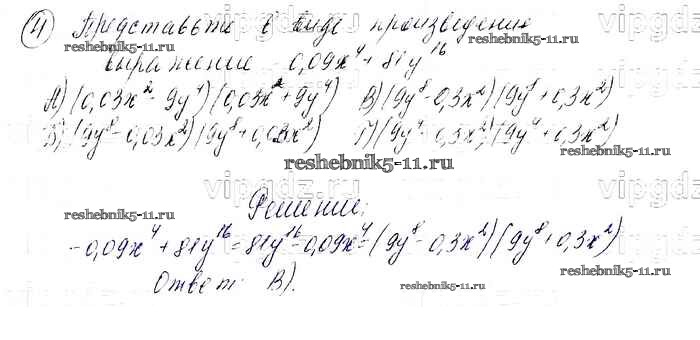 4) Представьте в виде произведения
выражение 0,09x⁴ + 81y¹⁶
А) (0,03x² - 9y⁴)(0,03x² + 9y⁴) В) (9y⁸ - 0,3x²)(9y⁸ + 0,3x²)
Б) (9y⁸ - 0,03x²)(9y⁸ + 0,03x²) Г) (9y⁴ - 0,3x²)(9y⁴ + 0,3x²)
Решение:
-0,09x⁴ + 81y¹⁶ = 81y¹⁶ - 0,09x⁴ = (9y⁸ - 0,3x²)(9y⁸ + 0,3x²)
Ответ: В).
reshebnik5-11.ru
reshebnik5-11.ru
reshebnik5-11.ru
reshebnik5-11.ru
reshebnik5-11.ru
reshebnik5-11.ru
reshebnik5-11.ru
vipgdz.ru